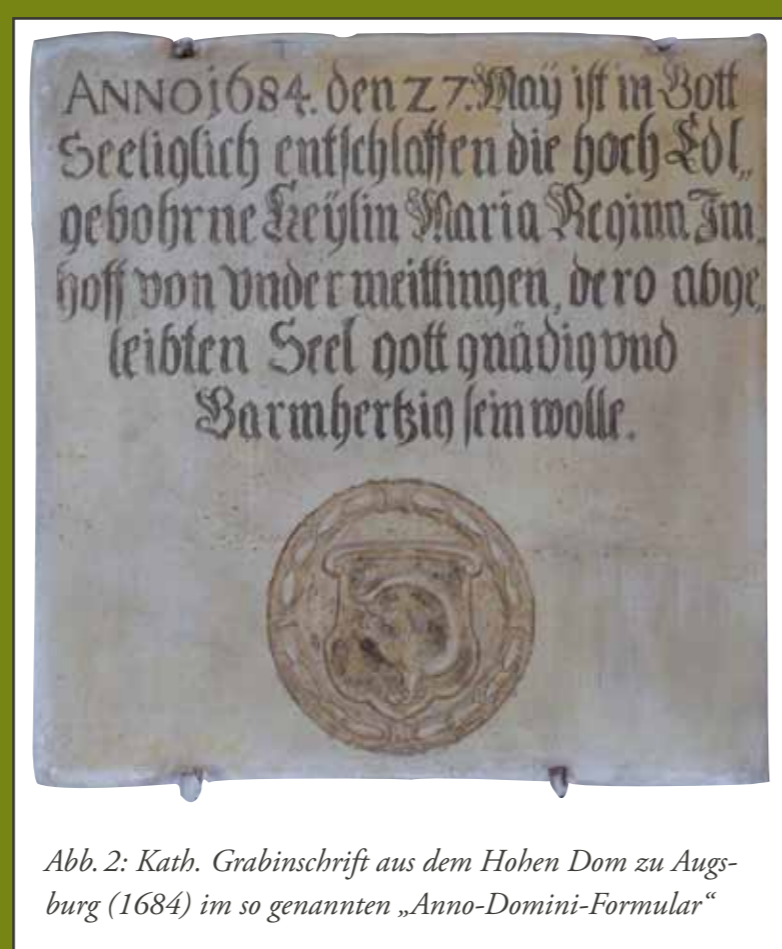 ANNO 1684. den 27. Maÿ ist in Gott
Seeliglich entschlaffen die hoch Edl„
gebohrne Freÿlin Maria Regina Im„
hoff von Vndermeittingen, dero abge„
leibten Seel gott gnädig vnd
Barmhertzig sein wolle.
Abb. 2: Kath. Grabinschrift aus dem Hohen Dom zu Augs-
burg (1684) im so genannten „Anno-Domini-Formular“